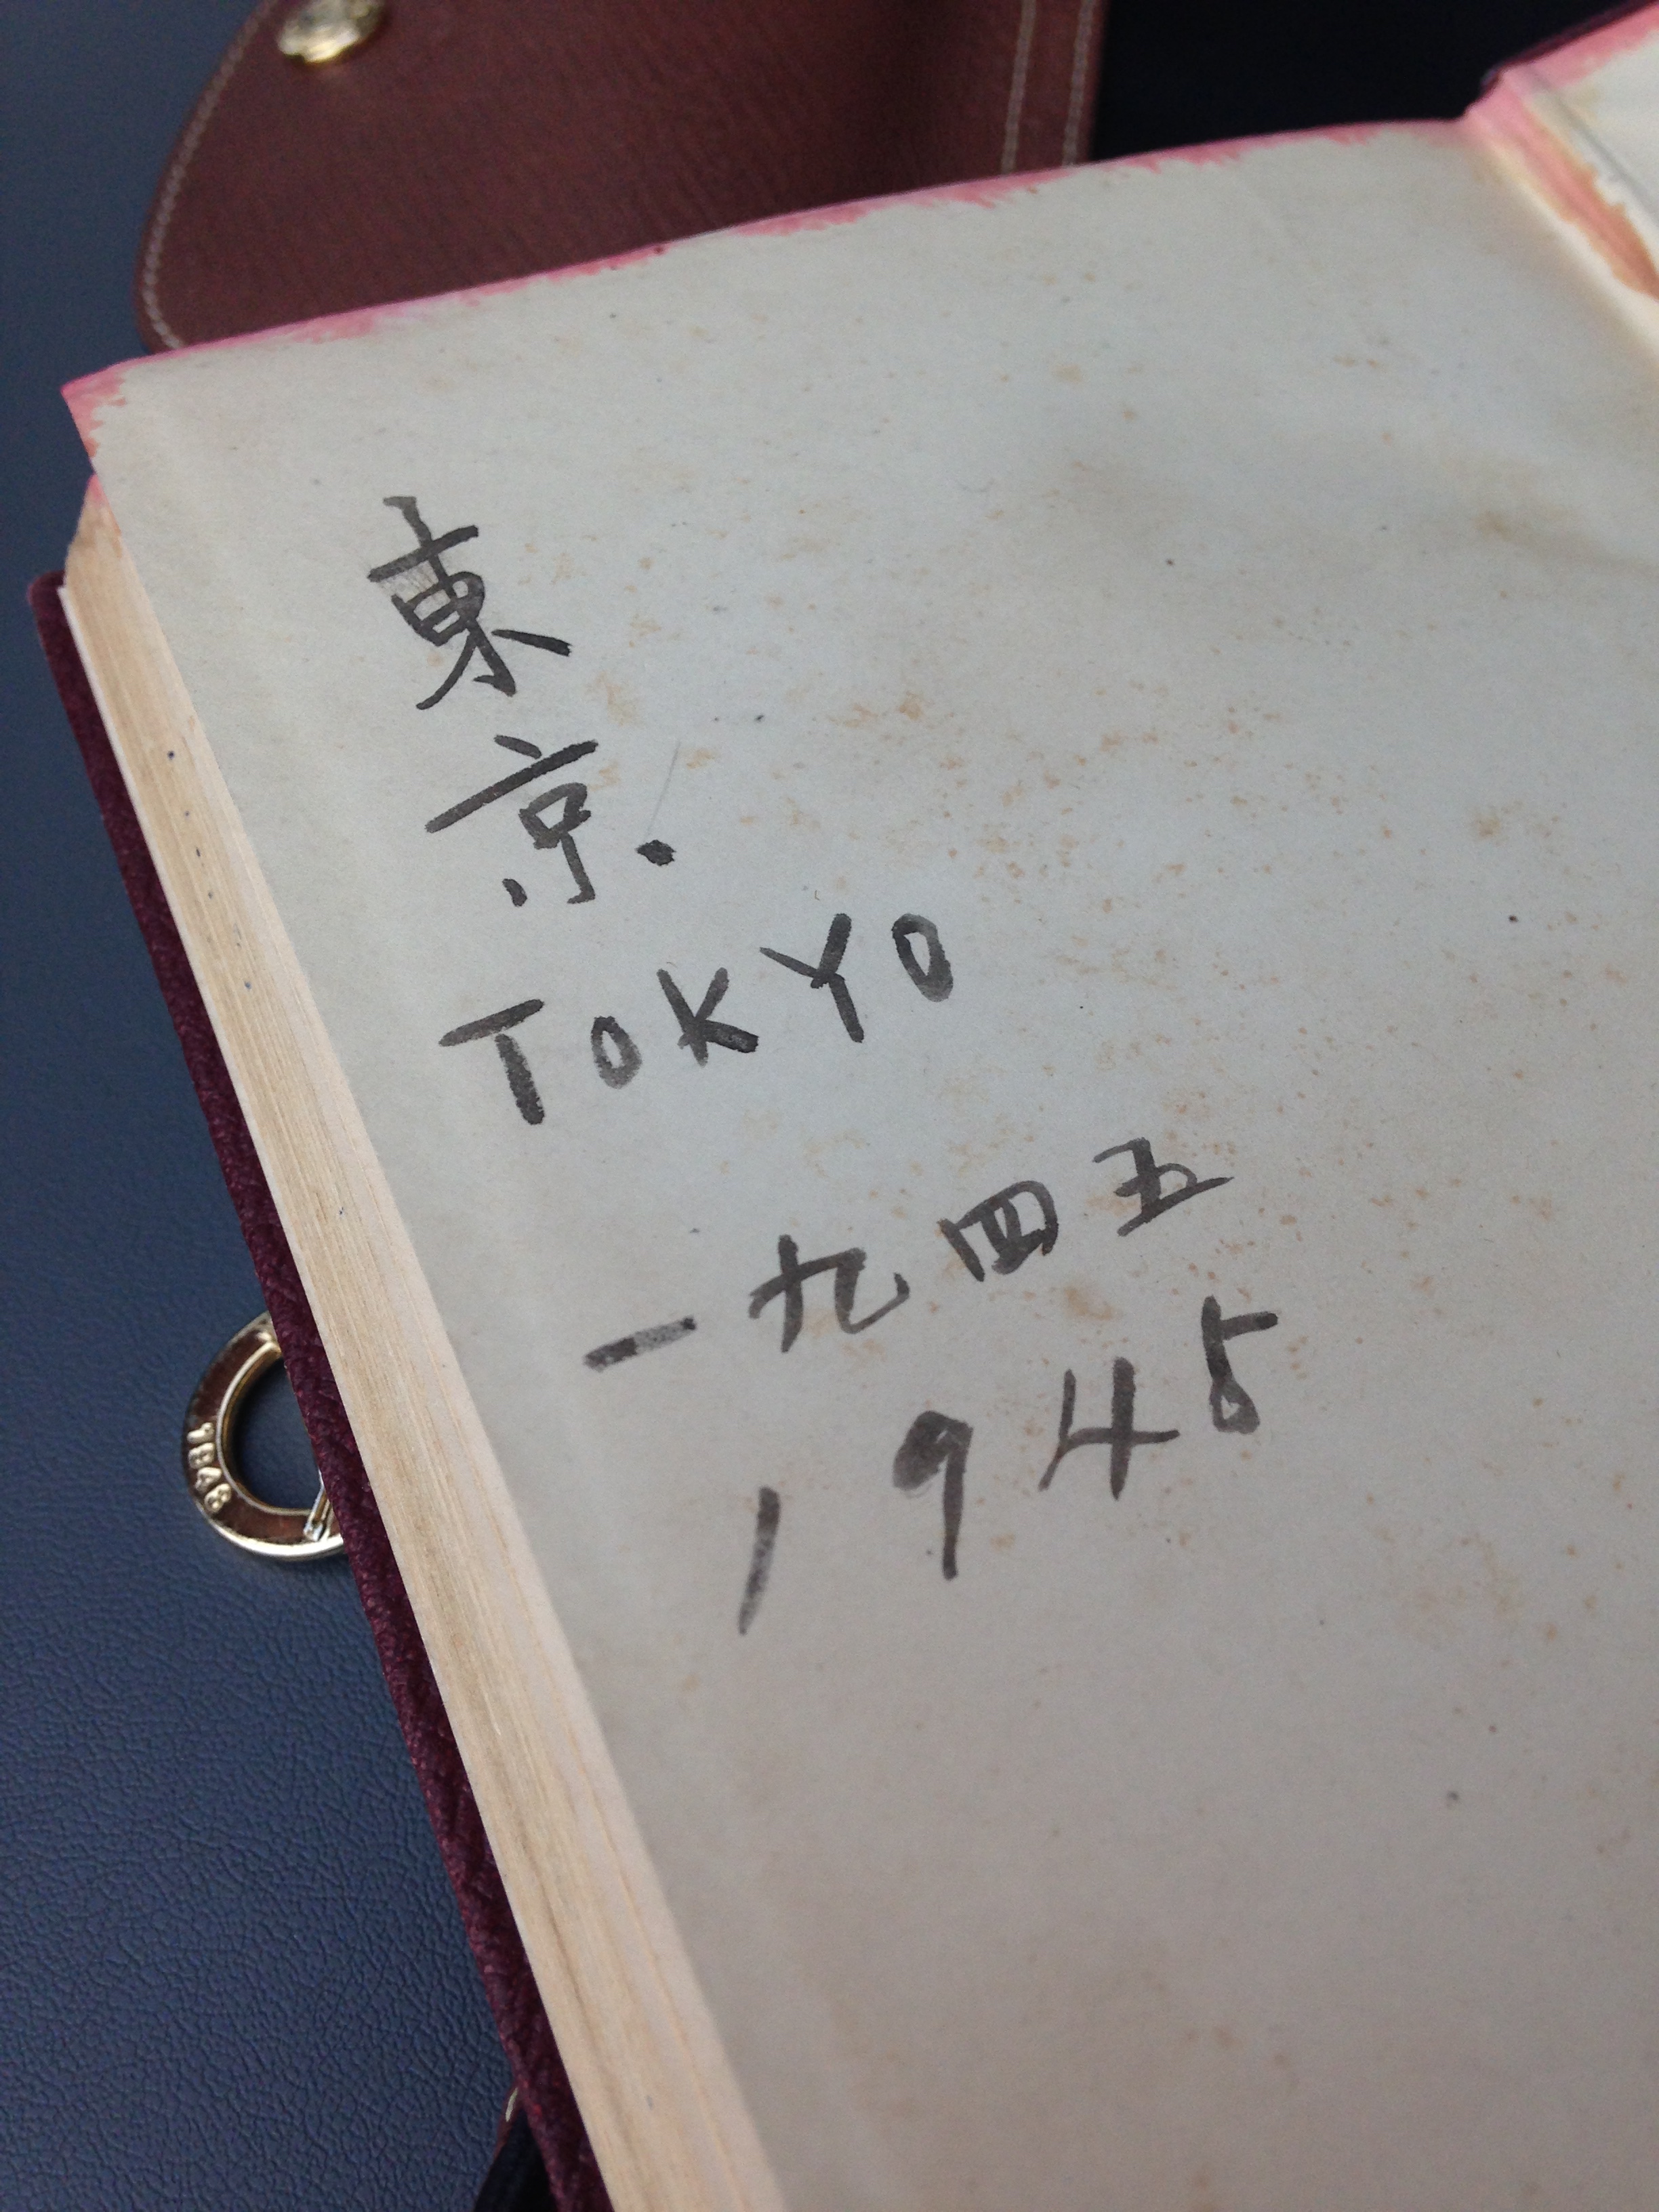 東
京.
TOKYO
一九四五
1945
1848